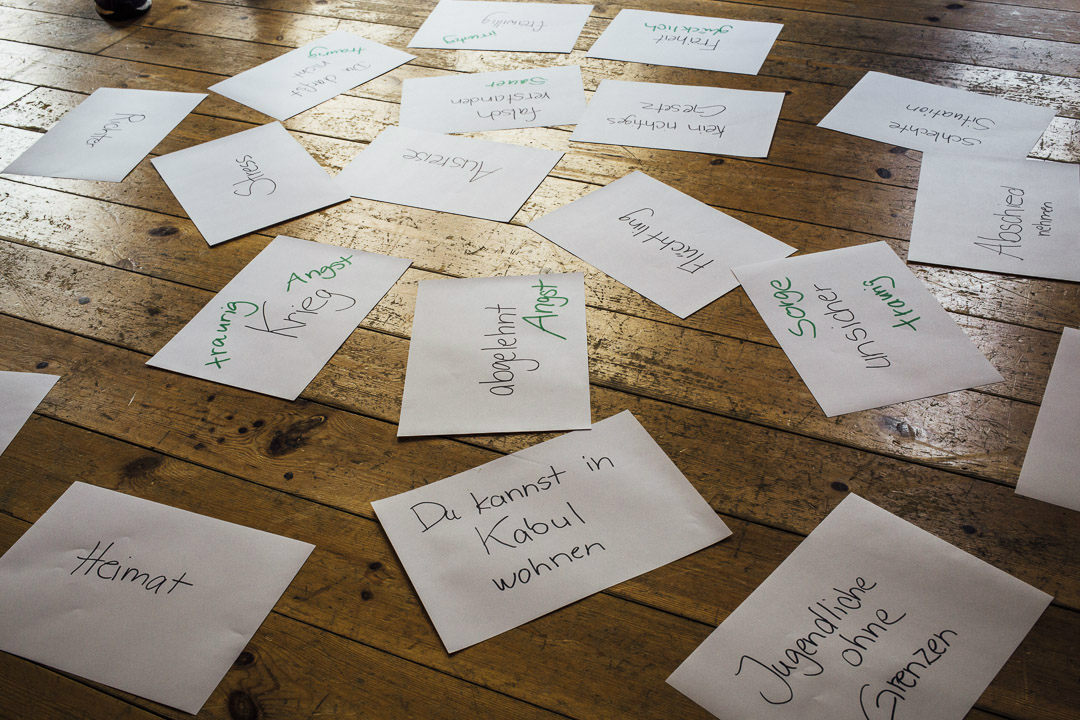 Freiheit
glücklich
traurig
Du darfst
falsch
verstanden
Sauer
kein richtiges
Gesetz
schlechte
Situation
Stress
Ausreise
Flüchtling
Abschied
nehmen
traurig Angst
Krieg
abgelehnt
Angst
Sorge
unsicher
traurig
Du kannst in
Kabul
wohnen
Heimat
Jugendliche
ohne
Grenzen